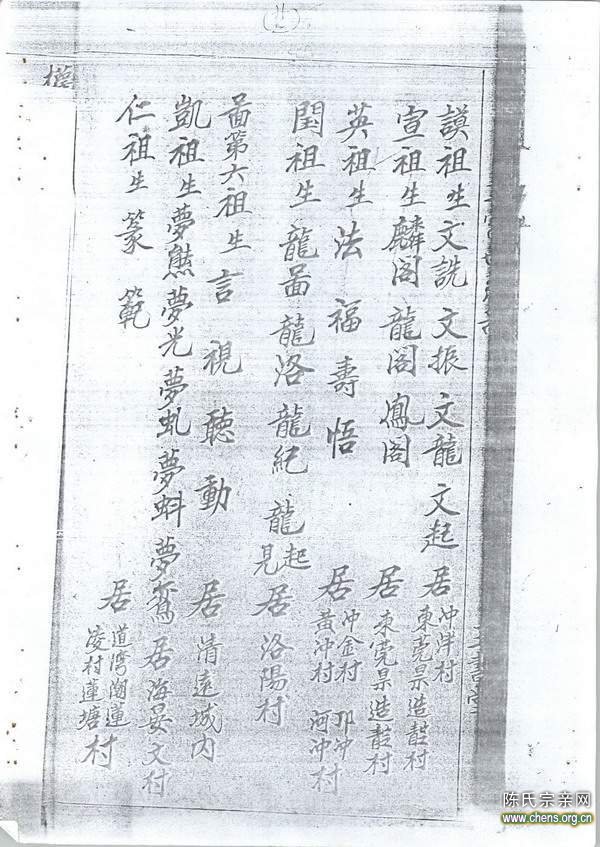 謨祖生文詵 文振 文龍 文起 居冲坢村 東莞杲造䪺村
宣祖生麟阁 龍阁 鳳阁 居東莞杲造䪺村
英祖生法 福 壽 悟 居冲金村 邛冲 黃冲村 河冲村
閏祖生龍啚龍洛龍紀龍起 龍見 居洛陽村
啚第六祖生言 視 聽 動 居清遠城内
凱祖生夢熊夢光夢虬夢蚪夢鸞居海晏文村
仁祖生篆 範 居道湾潮蓮 凌村蓮塘村
陈氏宗亲网
www.chens.org.cn